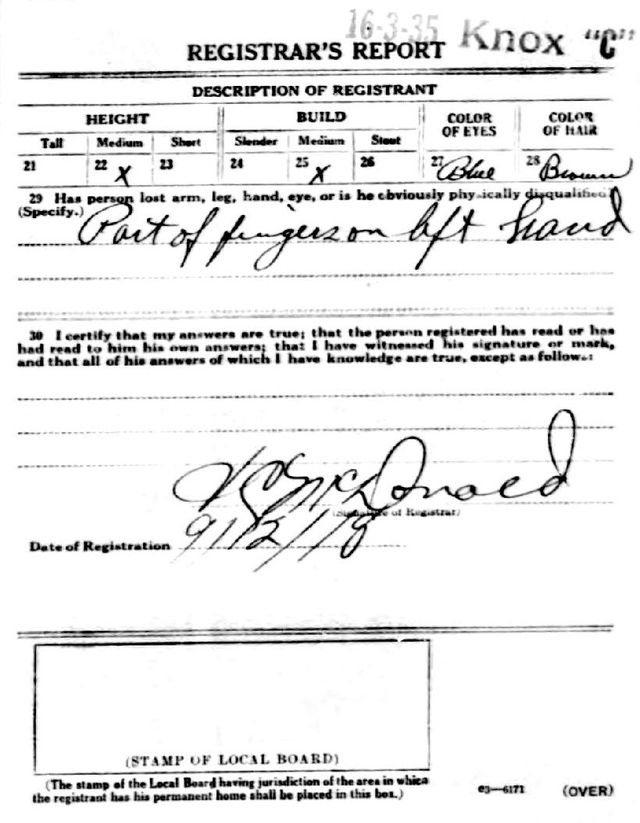 16-3-35 Knox "C"
REGISTRAR'S REPORT
DESCRIPTION OF REGISTRANT
HEIGHT BUILD COLOR OF EYES COLOR OF HAIR
Tall Medium Short Slender Medium Stout
21 22 X 23 24 25 X 26 27 Blue 28 Brown
29 Has person lost arm, leg, hand, eye, or is he obviously physically disqualified?
(Specify.) Part of fingers on left hand
30 I certify that my answers are true; that the person registered has read or has
had read to him his own answers; that I have witnessed his signature or mark,
and that all of his answers of which I have knowledge are true, except as follows:
McDonald
(Signature of Registrar)
Date of Registration 9/12/18
(STAMP OF LOCAL BOARD)
(The stamp of the Local Board having jurisdiction of the area in which
the registrant has his permanent home shall be placed in this box.)
03—6171 (OVER)